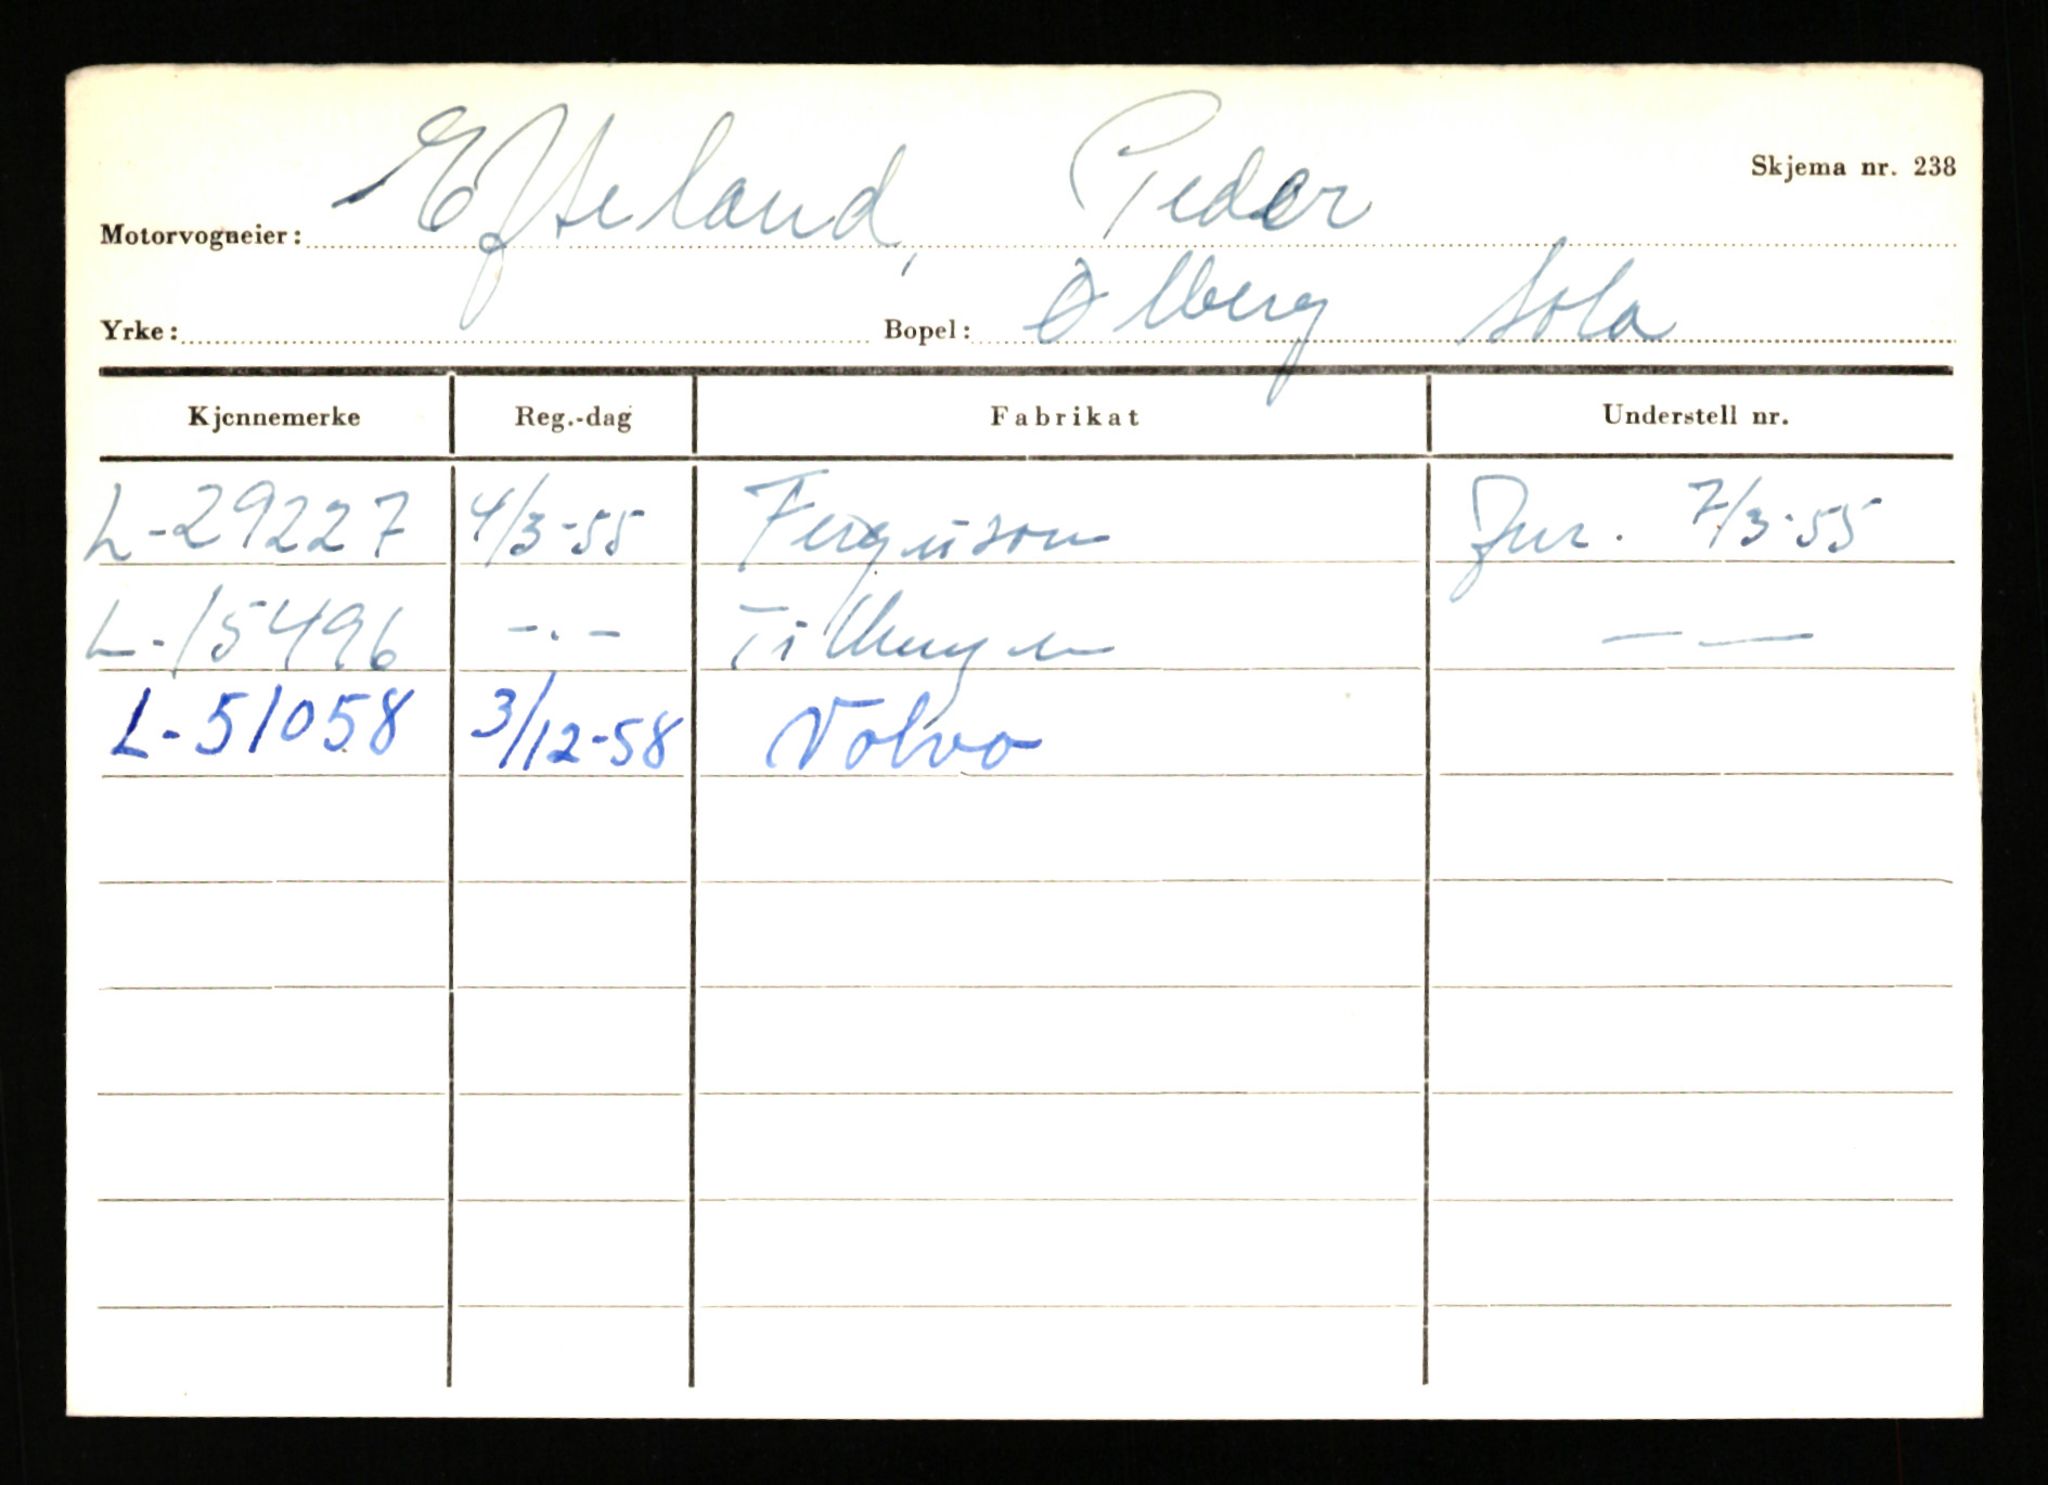 Skjema nr. 238
Motorvogneier: Efteland, Peder
Yrke: Bopel: Ølberg Sola
Kjennemerke Reg.-dag Fabrikat Understell nr.
L-29227 4/3-55 Ferguson 7/3-55
L-15496 -.- — —
L-51058 3/12-58 Volvo